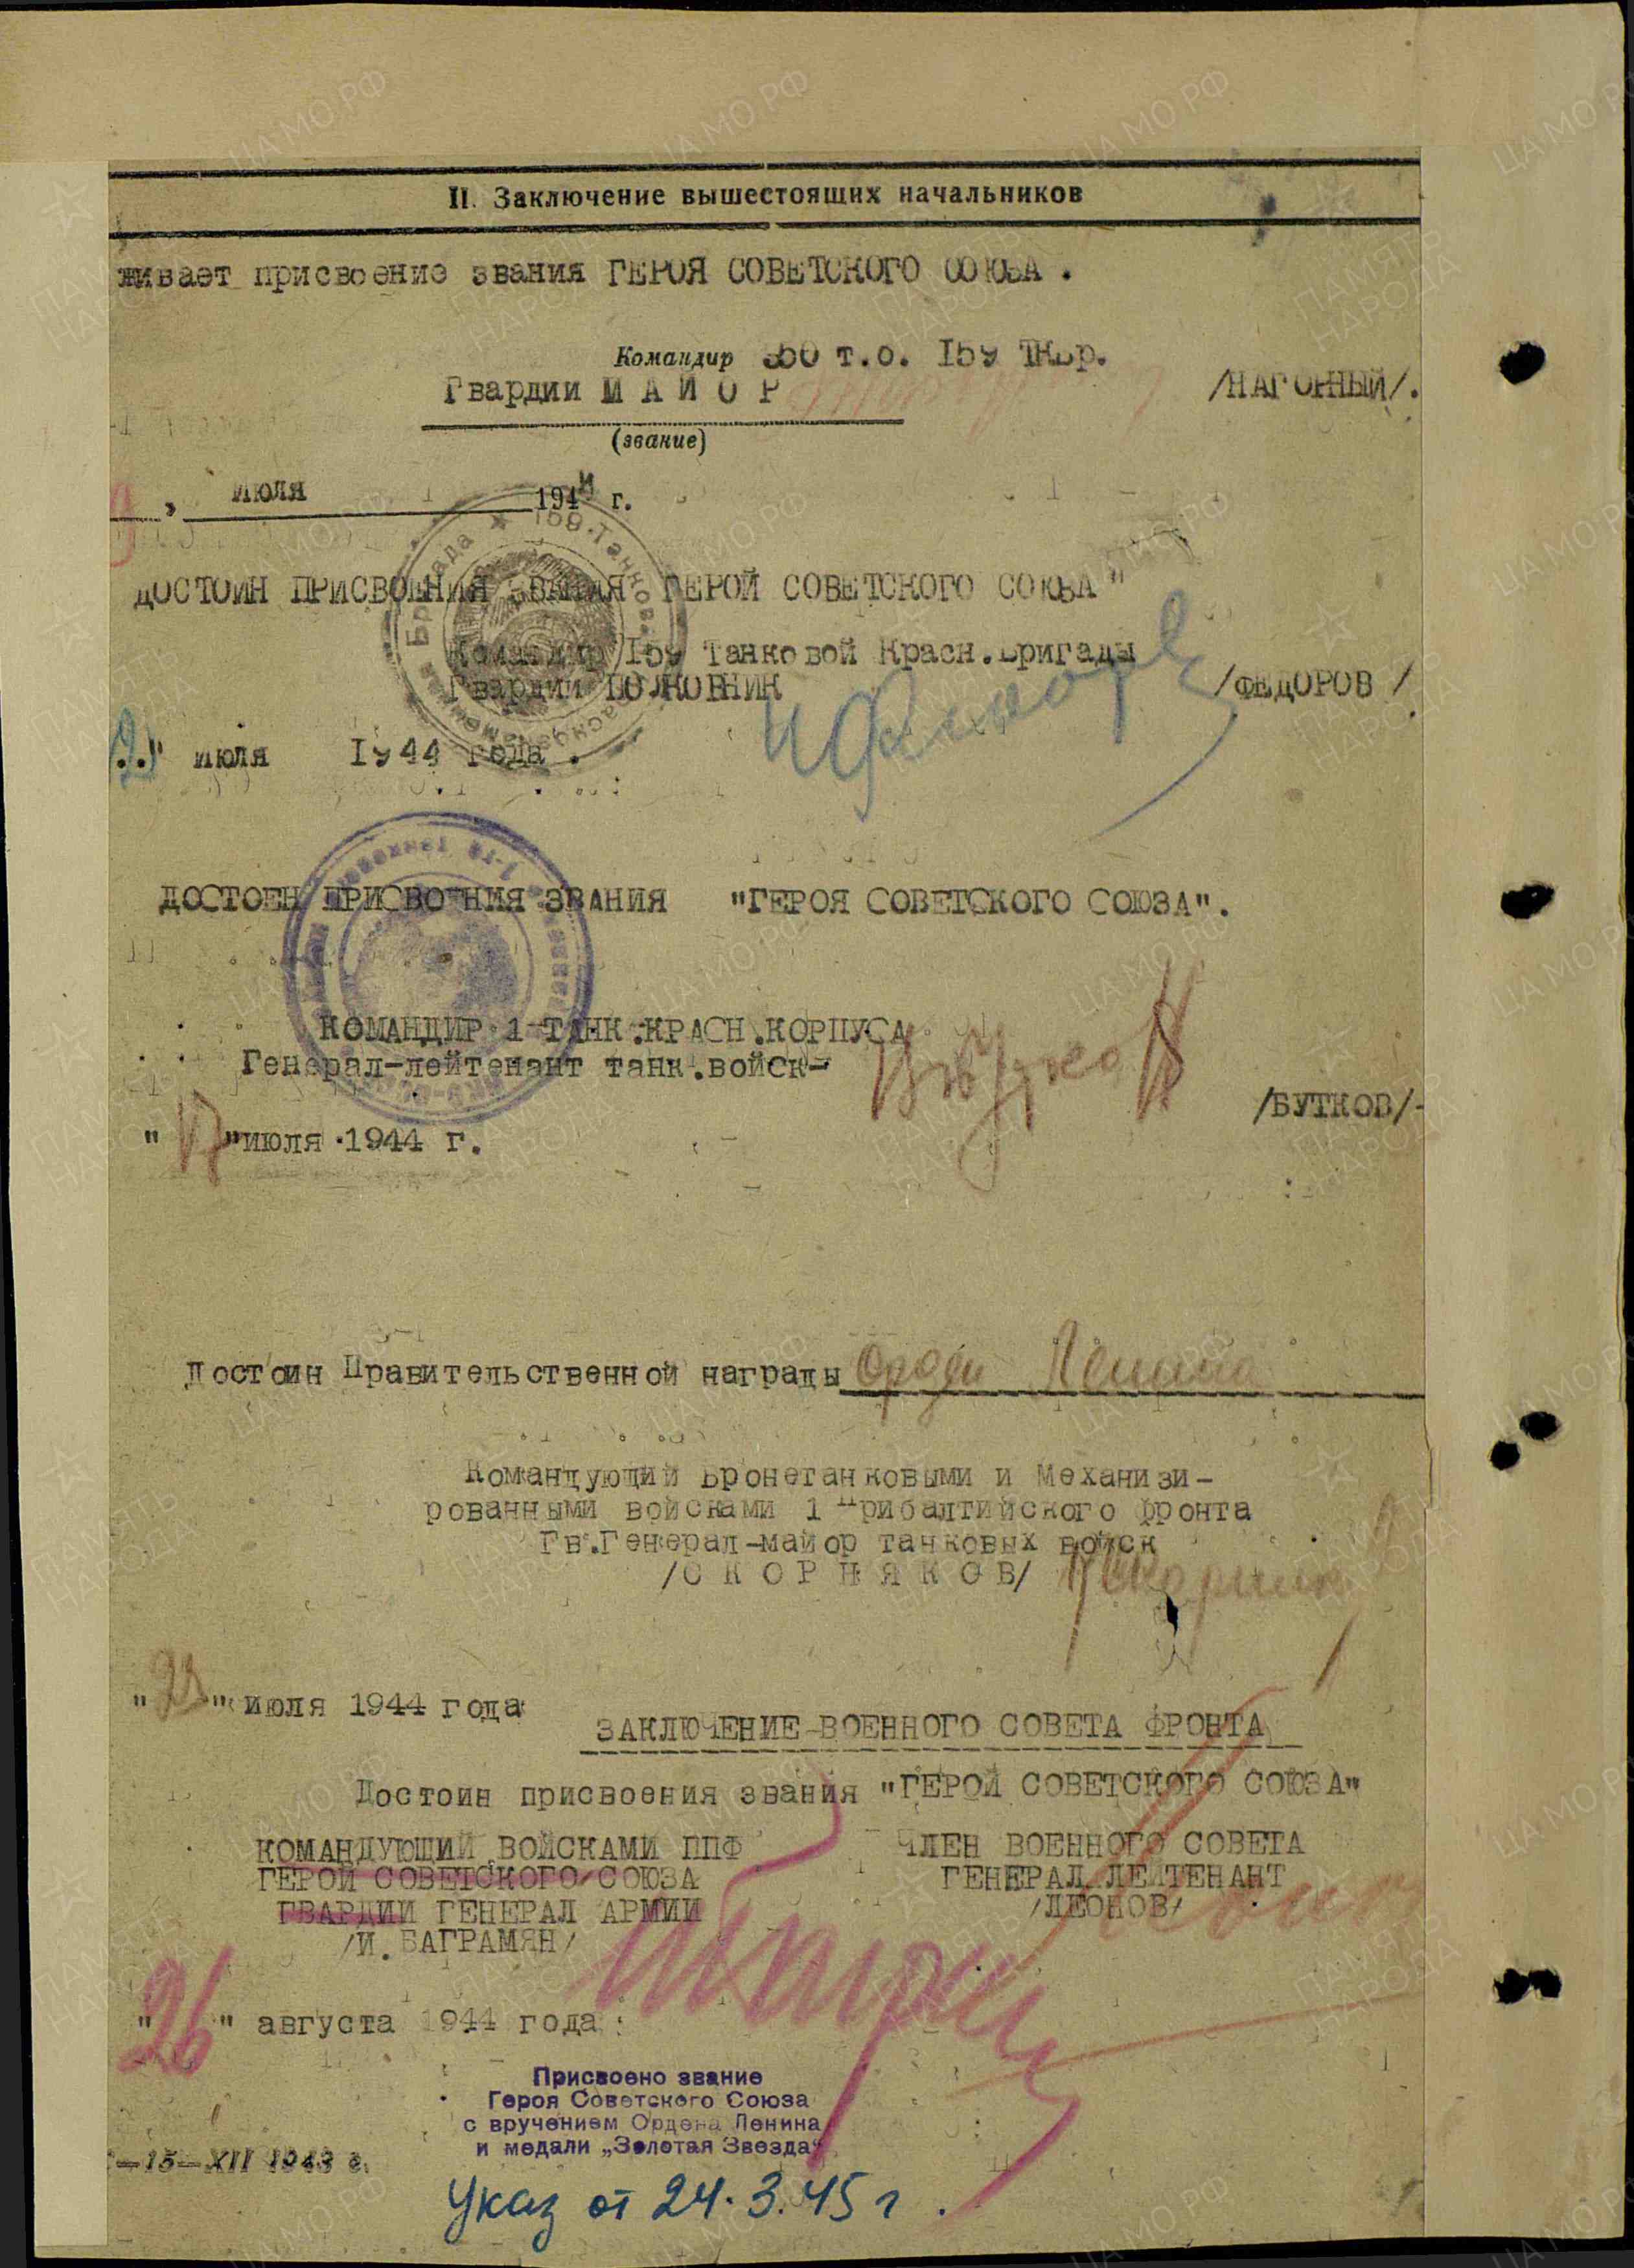 II. Заключение вышестоящих начальников
живает присвоение звания ГЕРОЯ СОВЕТСКОГО СОЮЗА .
Командир 350 т.о. 159 ТКБр.
Гвардии М А Й О Р /НАГОРНЫЙ/.
(звание)
, июля 1944 г.
ДОСТОИН ПРИСВОЕНИЯ ЗВАНИЯ "ГЕРОЙ СОВЕТСКОГО СОЮЗА"
Командир 159 Танковой Красн.Бригады
Гвардии ПОЛКОВНИК /ФЕДОРОВ /
июля 1944 года .
ДОСТОЕН ПРИСВОЕНИЯ ЗВАНИЯ "ГЕРОЯ СОВЕТСКОГО СОЮЗА".
КОМАНДИР 1 ТАНК.КРАСН.КОРПУСА
Генерал-лейтенант танк.войск-
/БУТКОВ/-
"17"июля 1944 г.
Достоин Правительственной награды Орден Ленина
Командующий Бронетанковыми и Механизи-
рованными войсками 1 Прибалтийского фронта
Гв.Генерал-майор танковых войск
/С К О Р Н Я К О В/
"23" июля 1944 года
ЗАКЛЮЧЕНИЕ ВОЕННОГО СОВЕТА ФРОНТА
Достоин присвоения звания "ГЕРОЙ СОВЕТСКОГО СОЮЗА"
КОМАНДУЮЩИЙ ВОЙСКАМИ ППФ ЧЛЕН ВОЕННОГО СОВЕТА
ГЕРОЙ СОВЕТСКОГО СОЮЗА ГЕНЕРАЛ ЛЕЙТЕНАНТ
ГВАРДИИ ГЕНЕРАЛ АРМИИ /ЛЕОНОВ/
/И. БАГРАМЯН/
"26" августа 1944 года
Присвоено звание
Героя Советского Союза
с вручением Ордена Ленина
и медали „Золотая Звезда"
-15-XII 1943 г.
Указ от 24.3.45 г.